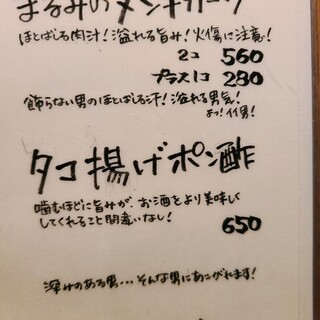 まるみのメンチカーツ
ほとばしる肉汁!溢れる旨み!火傷に注意!
2コ 560
プラス1コ 280
飾らない男のほとばしる汗!溢れる男気!
よっ!イイ男!
タコ揚げポン酢
噛むほどに旨みが、お酒をより美味しく
してくれること間違いなし!
650
深みのある男…そんな男にあこがれます!